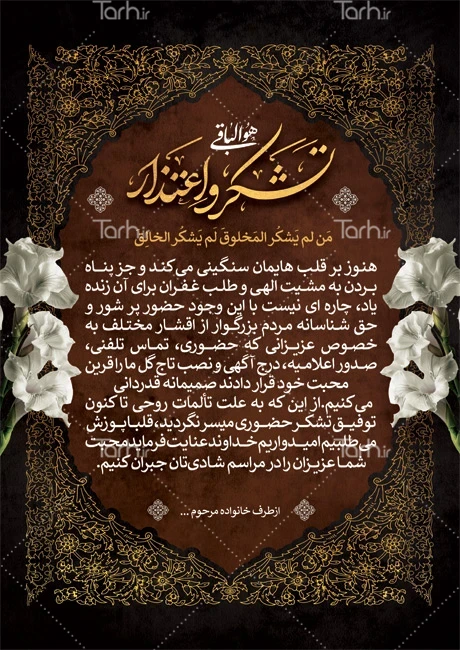 Tarh.ir Tarh.ir
هو الباقی
تشکر و اعتذار
Tarh.ir Tarh.ir
مَن لم یَشکُر المَخلوق لَم یَشکُر الخالِق
هنوز بر قلب هایمان سنگینی می‌کند و جز پناه
بردن به مشیت الهی و طلب غفران برای آن زنده
یاد، چاره ای نیست با این وجود حضور پر شور و
حق شناسانه مردم بزرگوار از اقشار مختلف به
خصوص عزیزانی که حضوری، تماس تلفنی،
صدور اعلامیه، درج آگهی و نصب تاج گل ما را قرین
محبت خود قرار دادند صمیمانه قدردانی
می‌کنیم.از این که به علت تألمات روحی تا کنون
توفیق تشکر حضوری میسر نگردید، قلبا پوزش
می‌طلبیم امیدواریم خداوند عنایت فرماید محبت
شما عزیزان را در مراسم شادی‌تان جبران کنیم.
ازطرف خانواده مرحوم ...
Tarh.ir Tarh.ir